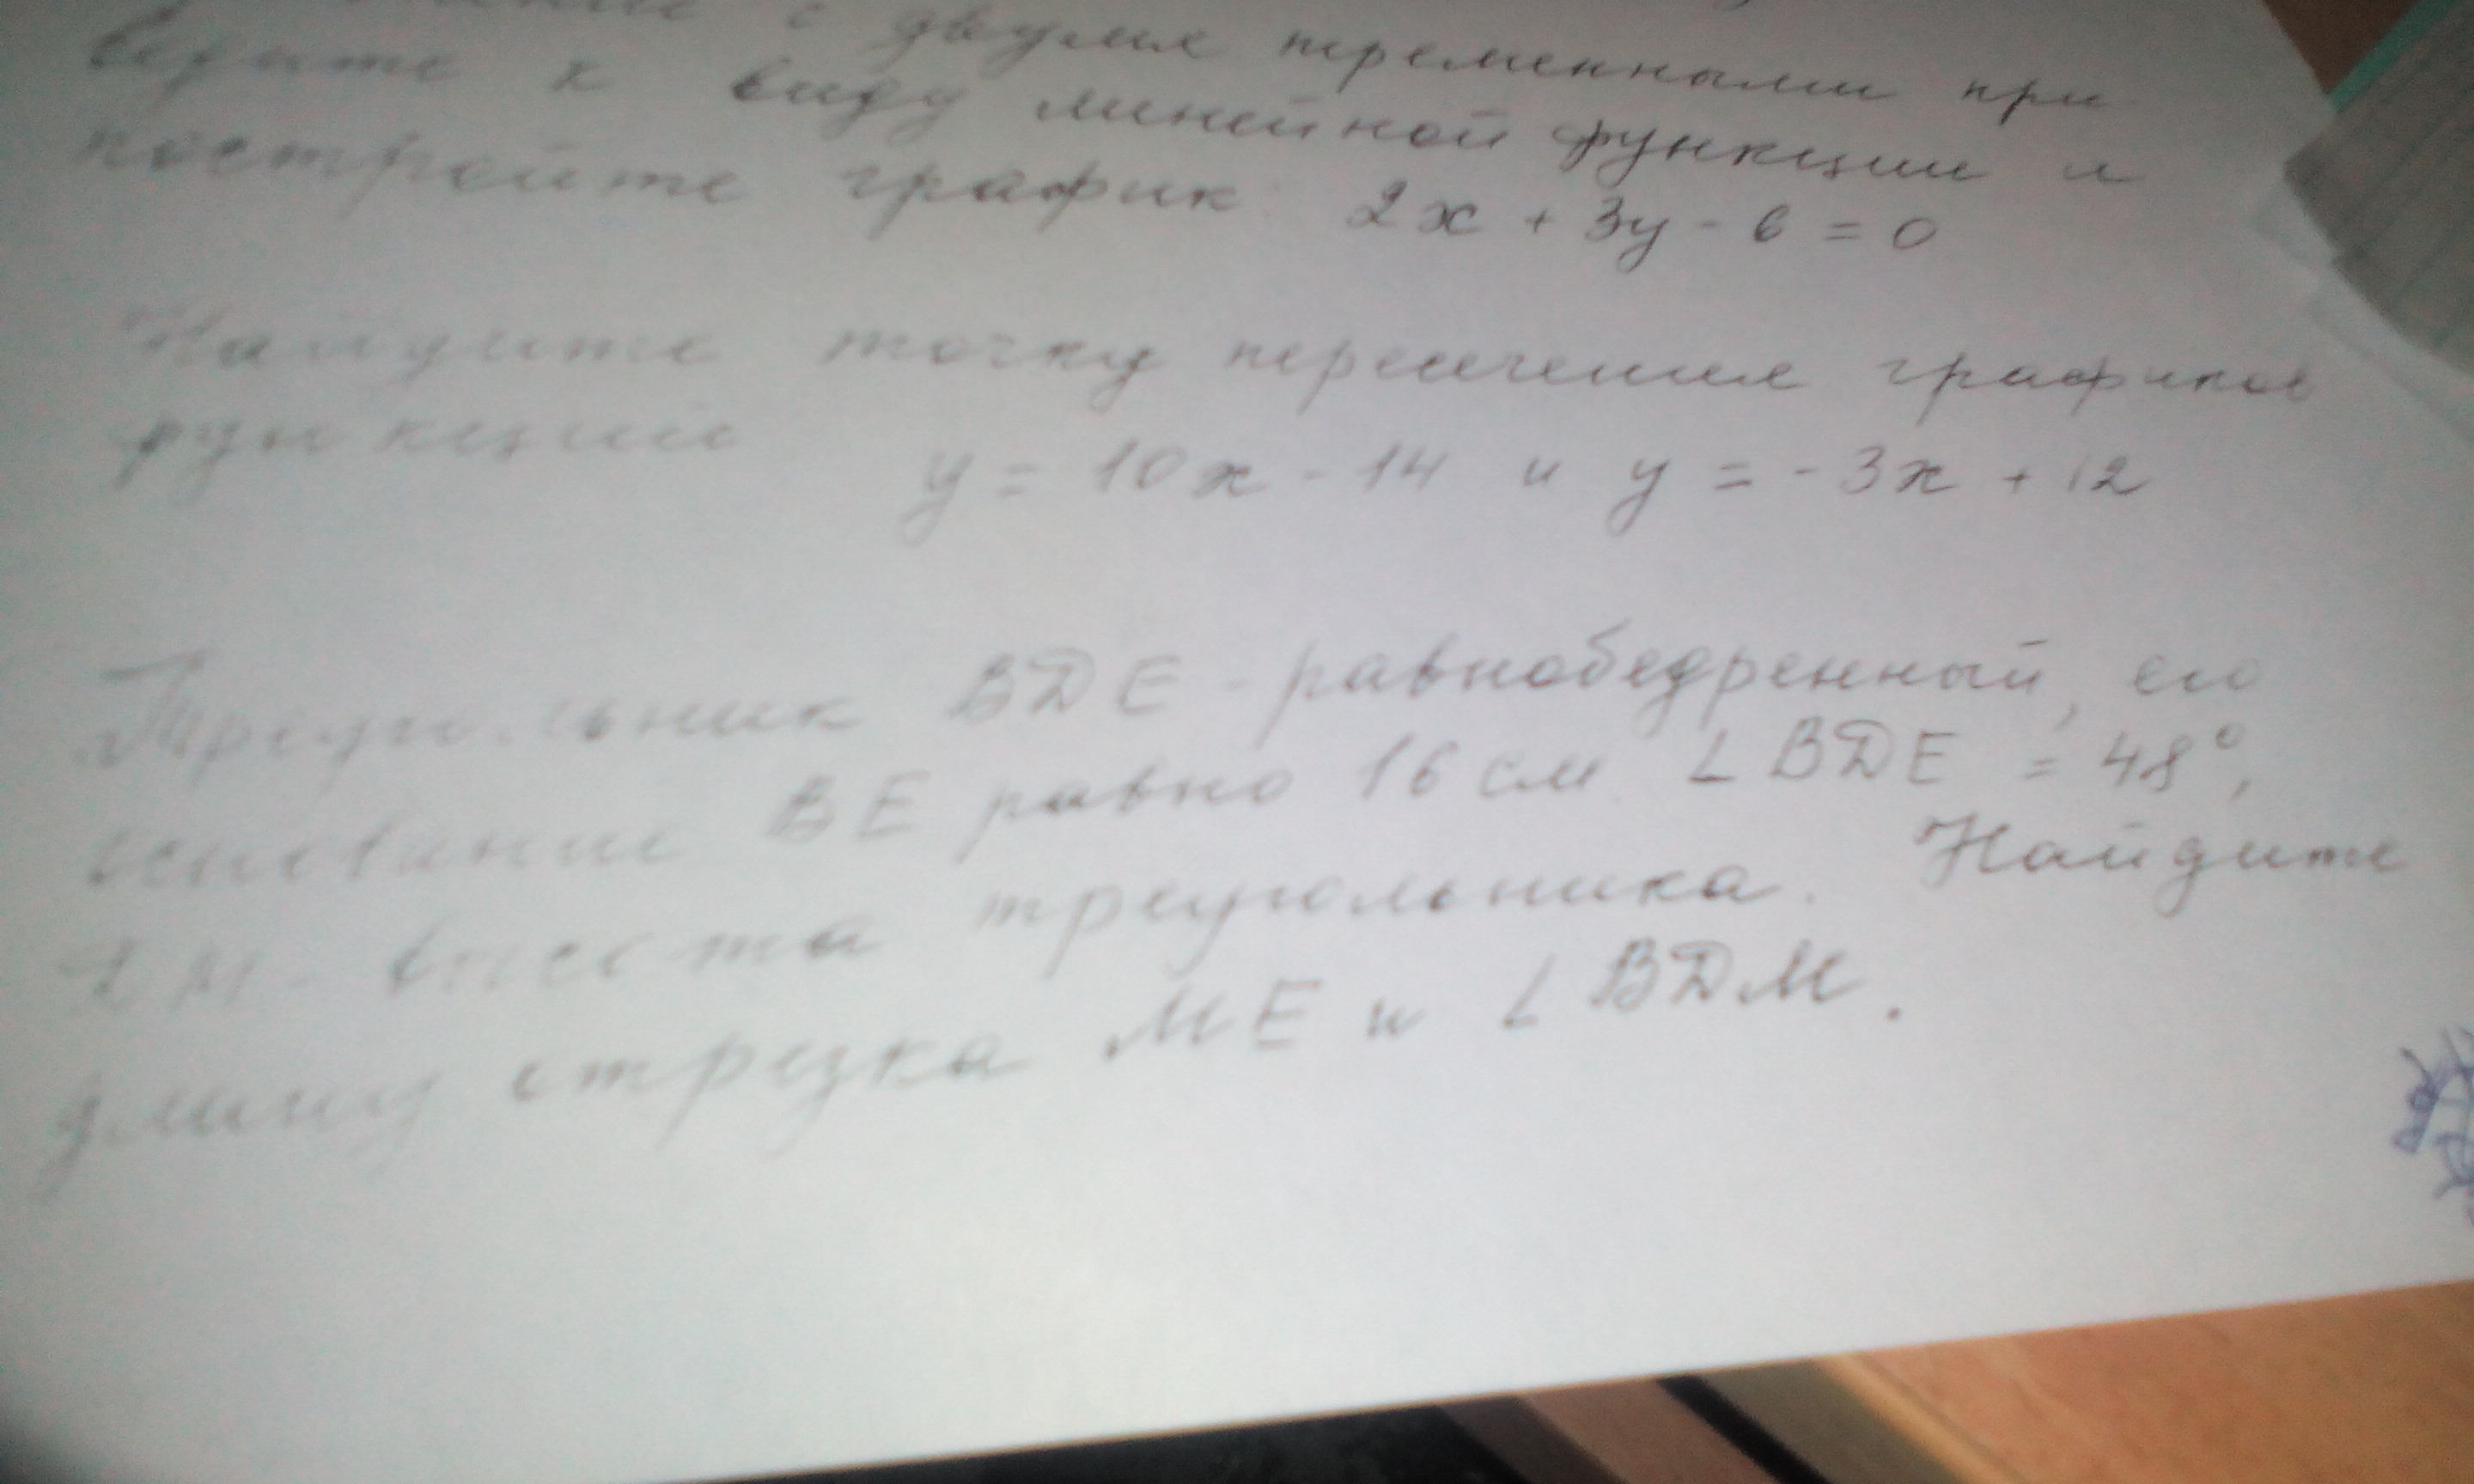 с двумя переменными при
ведите к виду линейной функции и
постройте график 2x + 3y - 6 = 0
Найдите точку пересечения графиков
функций y = 10x - 14 и y = -3x + 12
Треугольник BDE - равнобедренный, его
основание BE равно 16 см ∠BDE = 48°,
DM - высота треугольника. Найдите
длину отрезка ME и ∠BDM.